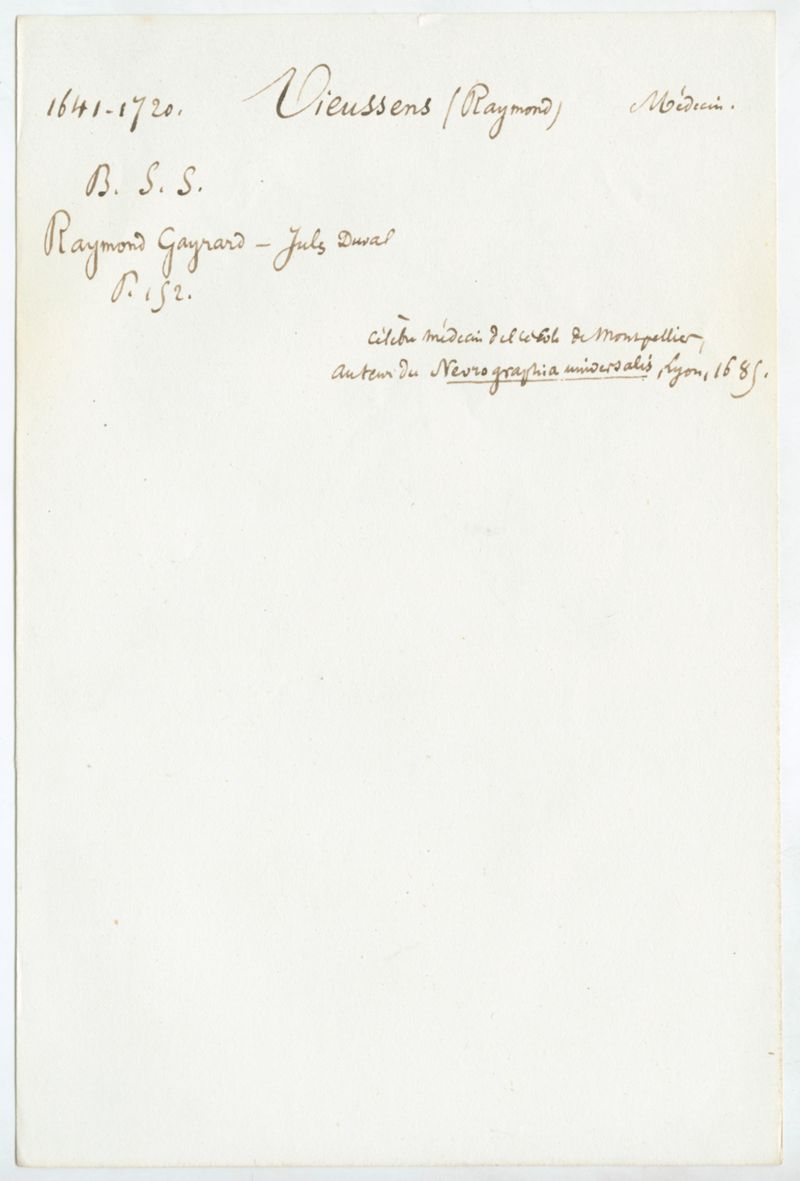 1641-1720. Vieussens (Raymond) Médecin.
B. S. S.
Raymond Gayrard – Jules Duval
P. 152.
célèbre médecin de l'école de Montpellier,
auteur du Nevrographia universalis, Lyon, 1685.